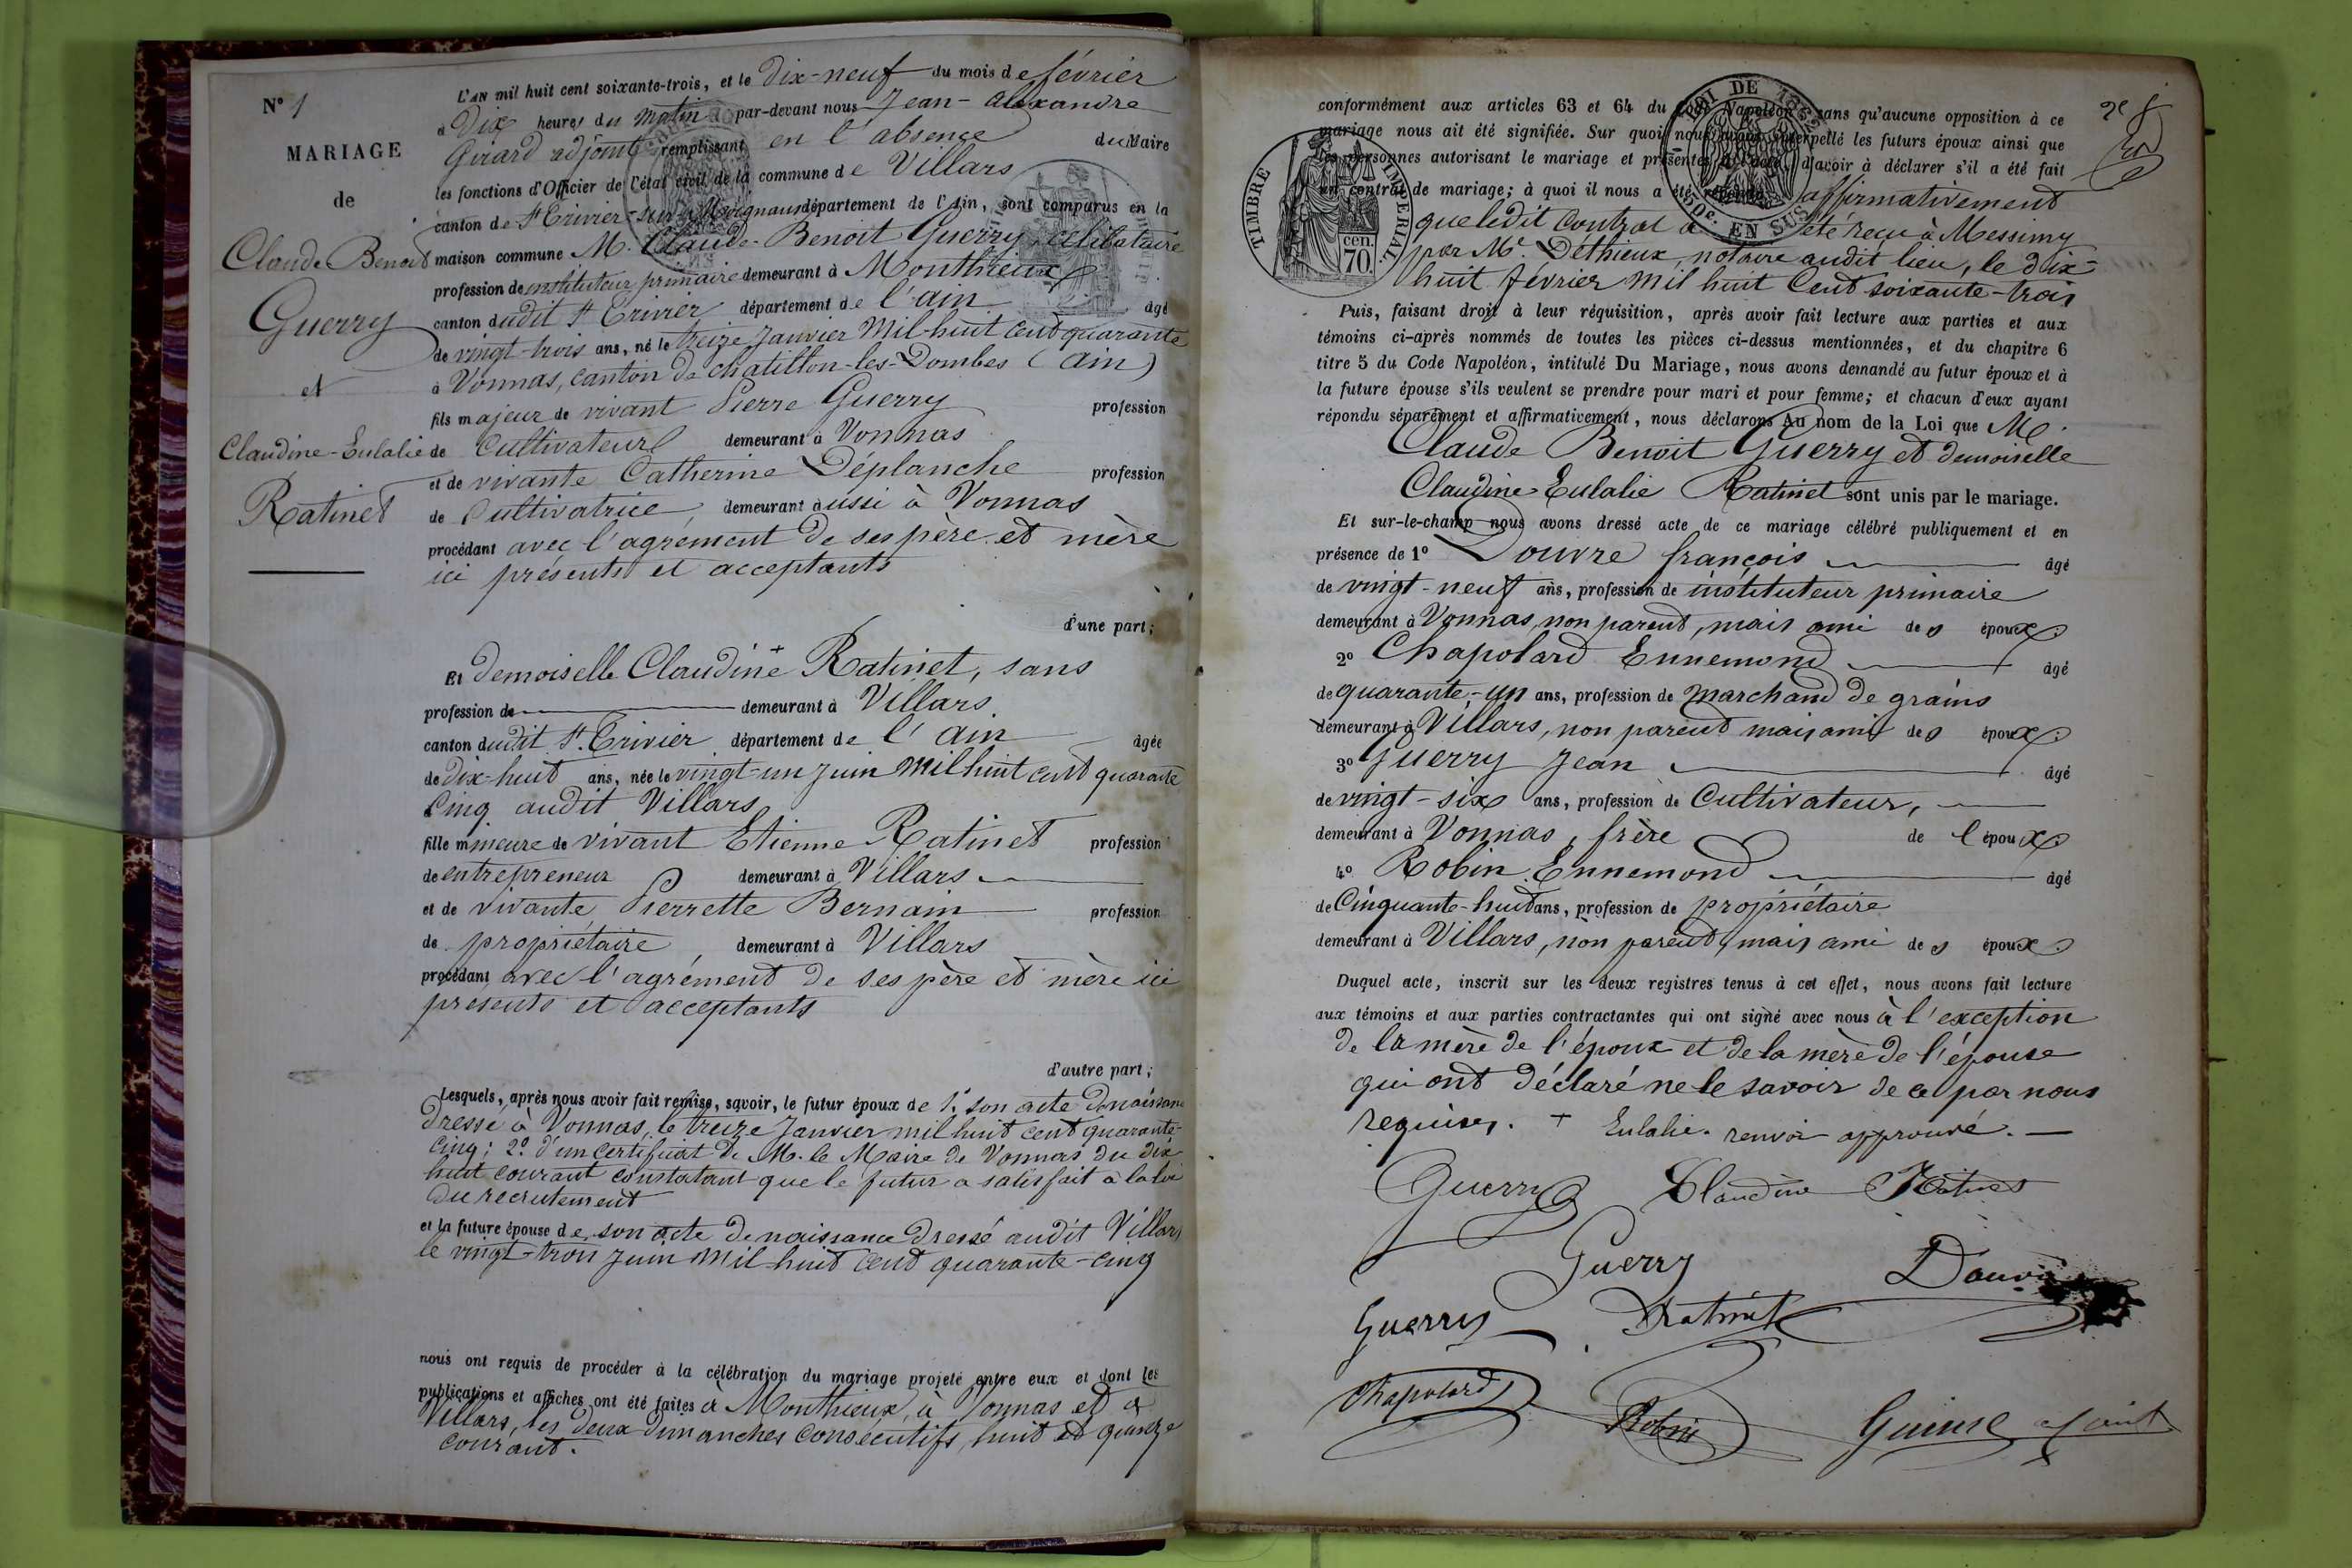 N° 1
MARIAGE
de
Claude Benoit
Guerry
et
Claudine-Eulalie
Ratinet
L'AN mil huit cent soixante-trois, et le Dix-neuf du mois de février
à Dix heures du matin par-devant nous Jean-Alexandre
Girard adjoint remplissant en l'absence du Maire
les fonctions d'Officier de l'état civil de la commune de Villars
canton de St Trivier-sur-Moignans département de l'Ain, sont comparus en la
maison commune M. Claude-Benoit Guerry, célibataire
profession de instituteur primaire demeurant à Monthieux
canton dudit St Trivier département de l'ain âgé
de vingt-trois ans, né le treize Janvier Mil-huit cent quarante
à Vonnas, canton de chatillon-les-Dombes (ain)
fils majeur de vivant Pierre Guerry profession
de Cultivateur demeurant à Vonnas
et de vivante Catherine Déplanche profession
de Cultivatrice, demeurant aussi à Vonnas
procédant avec l'agrément de ses père et mère
ici présents et acceptants
d'une part;
Et demoiselle Claudine + Ratinet, sans
profession de demeurant à Villars
canton dudit St. Trivier département de l'ain âgée
de Dix-huit ans, née le vingt-un Juin Mil huit cent quarante
Cinq audit Villars
fille mineure de vivant Etienne Ratinet profession
de entrepreneur demeurant à Villars
et de vivante Pierrette Bernain profession
de propriétaire demeurant à Villars
procédant avec l'agrément de ses père et mère ici
présents et acceptants
d'autre part;
Lesquels, après nous avoir fait remise, savoir, le futur époux de 1° son acte de naissance
dressé à Vonnas, le treize Janvier mil huit cent quarante-
cinq; 2° d'un certificat de M. le Maire de Vonnas du dix
huit courant constatant que le futur a satisfait à la loi
du recrutement
et la future épouse de son acte de naissance dressé audit Villars
le vingt-trois Juin Mil huit cent quarante-cinq
nous ont requis de procéder à la célébration du mariage projeté entre eux et dont les
publications et affiches ont été faites à Monthieux, à Vonnas et à
Villars, les deux dimanches consécutifs, huit et quinze
courant.
2e f
conformément aux articles 63 et 64 du Code Napoléon sans qu'aucune opposition à ce
mariage nous ait été signifiée. Sur quoi nous avons interpellé les futurs époux ainsi que
les personnes autorisant le mariage et présentes à l'acte, d'avoir à déclarer s'il a été fait
un contrat de mariage; à quoi il nous a été répondu affirmativement
que ledit contrat a été reçu à Messimy
par Me. Déthieux, notaire audit lieu, le dix-
huit février Mil huit Cent soixante-trois
TIMBRE IMPERIAL.
cen.
70.
DE
EN SUS
Puis, faisant droit à leur réquisition, après avoir fait lecture aux parties et aux
témoins ci-après nommés de toutes les pièces ci-dessus mentionnées, et du chapitre 6
titre 5 du Code Napoléon, intitulé Du Mariage, nous avons demandé au futur époux et à
la future épouse s'ils veulent se prendre pour mari et pour femme; et chacun d'eux ayant
répondu séparément et affirmativement, nous déclarons Au nom de la Loi que M.
Claude Benoit Guerry et demoiselle
Claudine Eulalie Ratinet sont unis par le mariage.
Et sur-le-champ nous avons dressé acte de ce mariage célébré publiquement et en
présence de 1° Douvre françois âgé
de vingt-neuf ans, profession de instituteur primaire
demeurant à Vonnas, non parent, mais ami des époux
2° Chapolard Ennemond âgé
de quarante-un ans, profession de marchand de grains
demeurant à Villars, non parent mais ami des époux
3° Guerry Jean âgé
de vingt-six ans, profession de Cultivateur,
demeurant à Vonnas, frère de l'époux
4° Robin Ennemond âgé
de Cinquante-huit ans, profession de propriétaire
demeurant à Villars, non parent, mais ami des époux
Duquel acte, inscrit sur les deux registres tenus à cet effet, nous avons fait lecture
aux témoins et aux parties contractantes qui ont signé avec nous à l'exception
de la mère de l'époux et de la mère de l'épouse
qui ont déclaré ne le savoir de ce par nous
requises. + Eulalie. renvoi approuvé.
Guerry Claudine Ratinet
Guerry Douvre
Guerry Ratinet
Chapolard Robin Girard adjoint